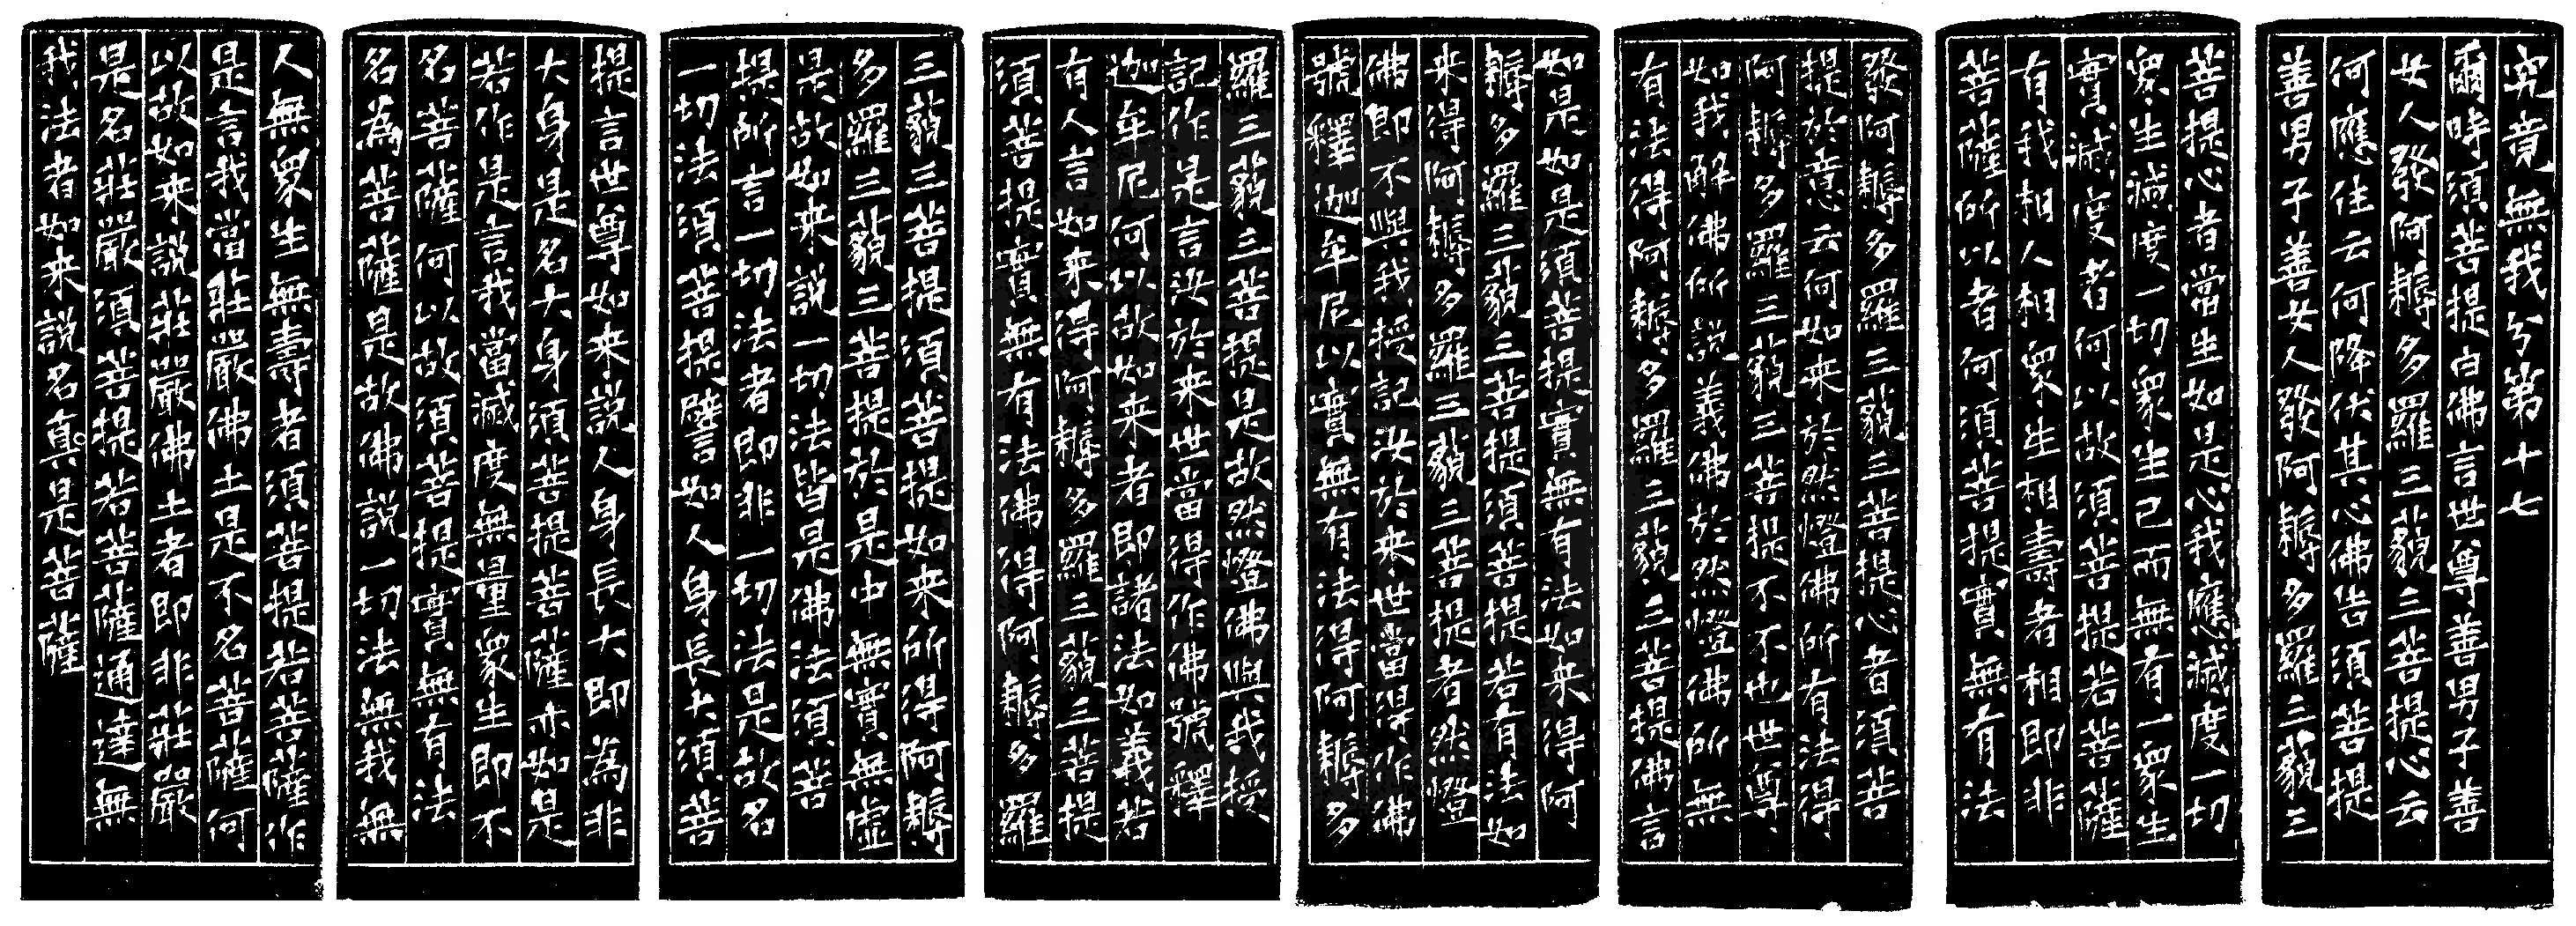 究竟無我分第十七
爾時須菩提白佛言世尊善男子善
女人發阿耨多羅三藐三菩提心云
何應住云何降伏其心佛告須菩提
善男子善女人發阿耨多羅三藐三
菩提心者當生如是心我應滅度一切
衆生滅度一切衆生已而無有一衆生
實滅度者何以故須菩提若菩薩
有我相人相衆生相壽者相即非
菩薩所以者何須菩提實無有法
發阿耨多羅三藐三菩提心者須菩
提於意云何如來於然燈佛所有法得
阿耨多羅三藐三菩提不不也世尊
如我解佛所說義佛於然燈佛所無
有法得阿耨多羅三藐三菩提佛言
如是如是須菩提實無有法如來得阿
耨多羅三藐三菩提須菩提若有法如
來得阿耨多羅三藐三菩提者然燈
佛即不與我授記汝於來世當得作佛
號釋迦牟尼以實無有法得阿耨多
羅三藐三菩提是故然燈佛與我授
記作是言汝於來世當得作佛號釋
迦牟尼何以故如來者即諸法如義若
有人言如來得阿耨多羅三藐三菩提
須菩提實無有法佛得阿耨多羅
三藐三菩提須菩提如來所得阿耨
多羅三藐三菩提於是中無實無虛
是故如來說一切法皆是佛法須菩
提所言一切法者即非一切法是故名
一切法須菩提譬如人身長大須菩
提言世尊如來說人身長大即為非
大身是名大身須菩提菩薩亦如是
若作是言我當滅度無量衆生即不
名菩薩何以故須菩提實無有法
名為菩薩是故佛說一切法無我無
人無衆生無壽者須菩提若菩薩作
是言我當莊嚴佛土是不名菩薩何
以故如來說莊嚴佛土者即非莊嚴
是名莊嚴須菩提若菩薩通達無
我法者如來說名真是菩薩